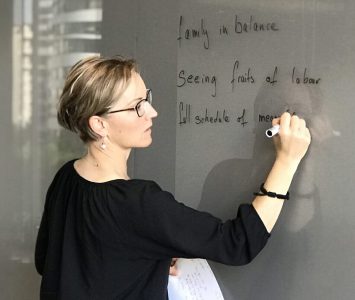 family in balance
Seeing fruits of labour
full schedule of